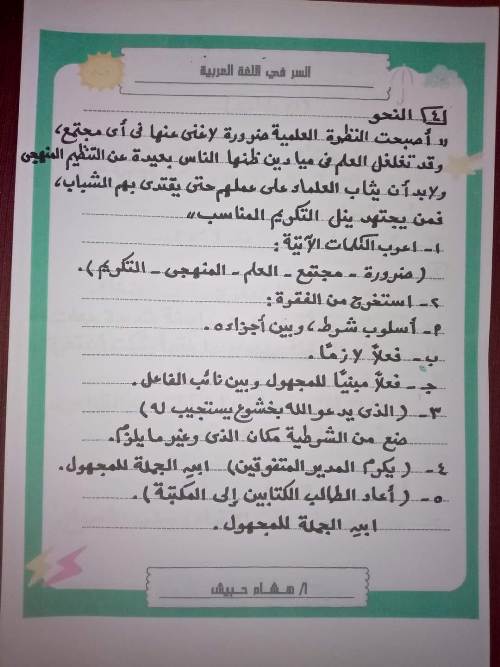 السر في اللغة العربية
٤ النحو
" أصبحت النظرة العلمية ضرورة لا غنى عنها فى أى مجتمع،
وقد تغلغل العلم فى ميادين ظنها الناس بعيدة عن التنظيم المنهجى
ولا بد أن يثاب العلماء على عملهم حتى يقتدى بهم الشباب،
فمن يجتهد ينل التكريم المناسب "
١- اعرب الكلمات الآتية :
( ضرورة - مجتمع - العلم - المنهجى - التكريم ).
٢- استخرج من الفقرة :
٩- أسلوب شرط، وبين أجزاءه .
ب- فعلًا لازمًا .
جـ- فعلًا مبنيًا للمجهول وبين نائب الفاعل .
٣- ( الذى يدعو الله بخشوع يستجيب له )
ضع من الشرطية مكان الذى وغير ما يلزم .
٤- ( يكرم المدير المتفوقين ) ابنِ الجملة للمجهول .
٥- ( أعاد الطالب الكتابين إلى المكتبة ) .
ابنِ الجملة للمجهول .
أ/ هشام حبيش